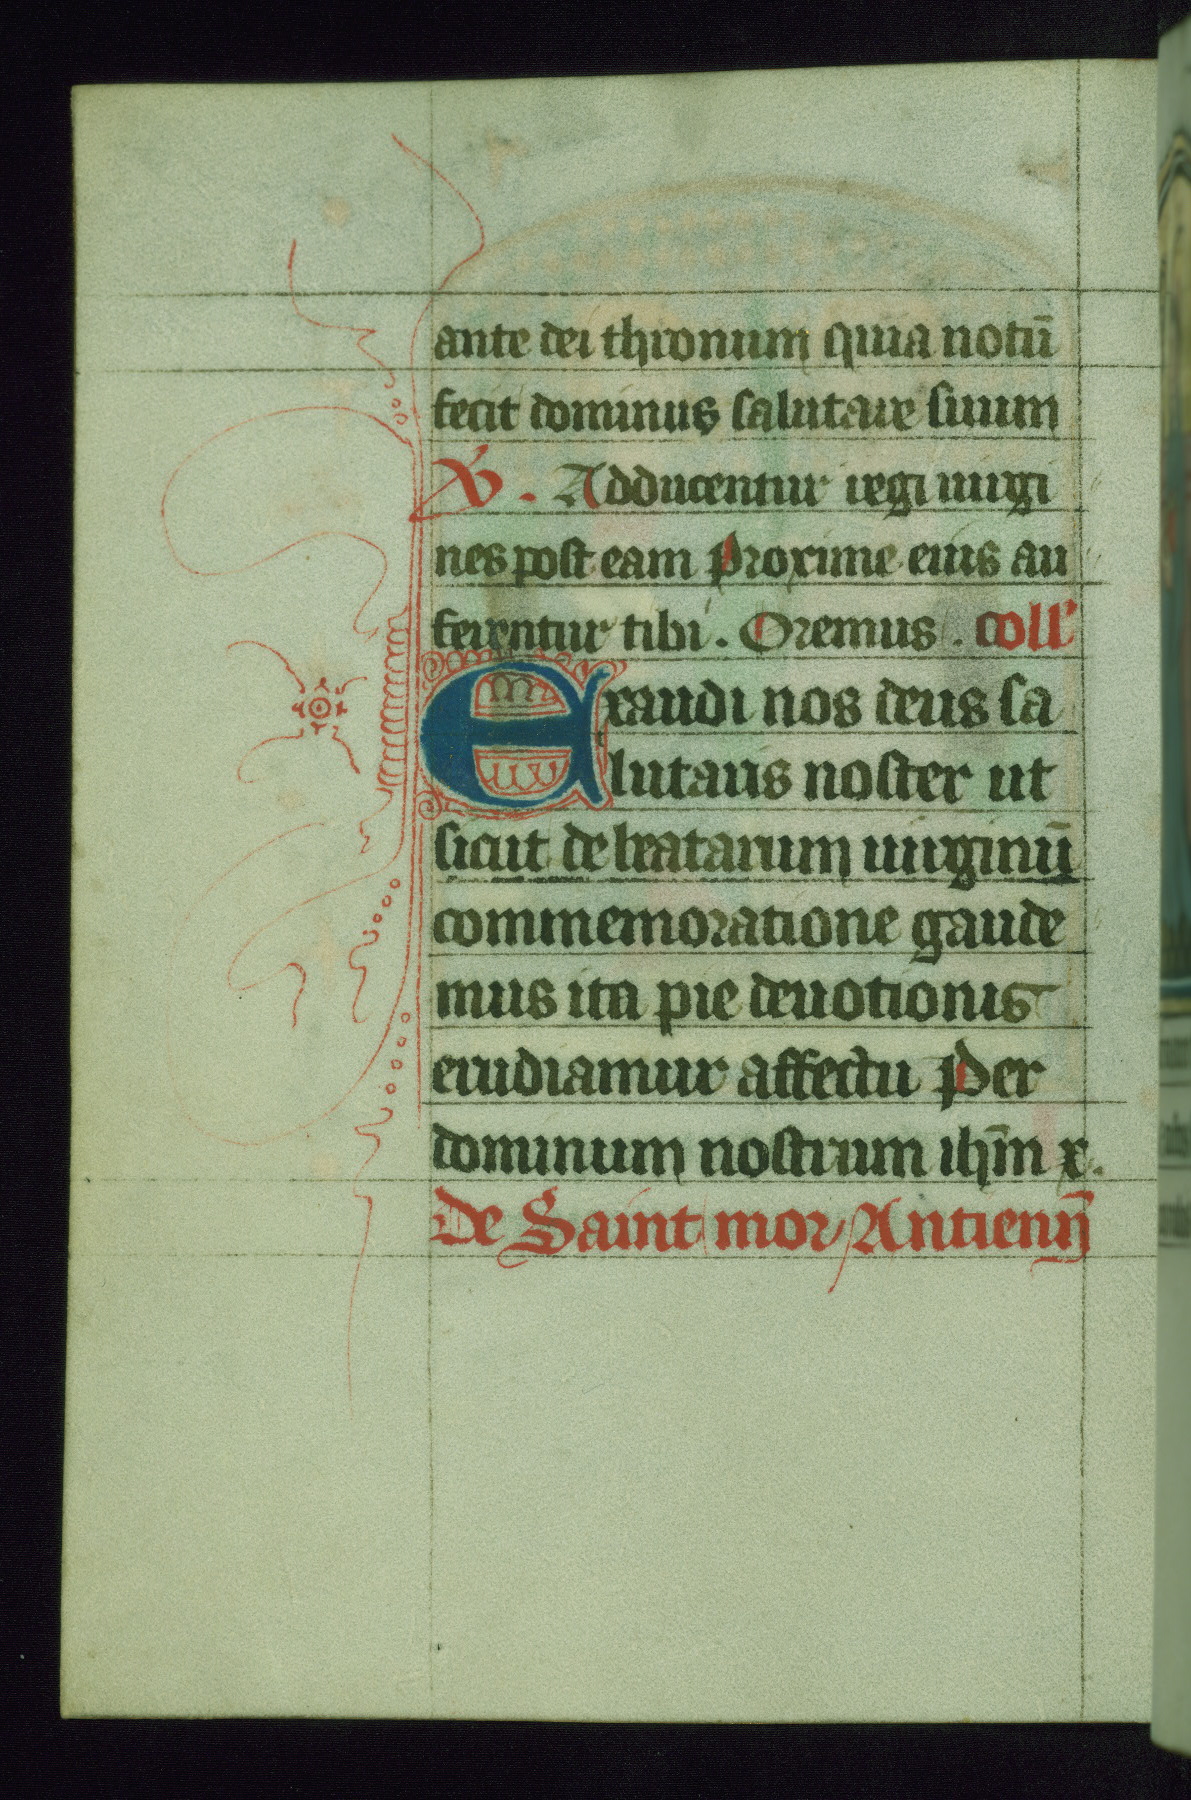 ante dei thronum quia notū
fecit dominus salutare suum
V. Adducentur regi uirgi
nes post eam Proxime eius au
ferentur tibi. Oremus. coll'
Exaudi nos deus sa
lutaris noster ut
sicut de beatarum uirginū
commemoratione gaude
mus ita pie deuotionis
erudiamur affectu Per
dominum nostrum ihm̄ x.
De Saint mor Antienn̄